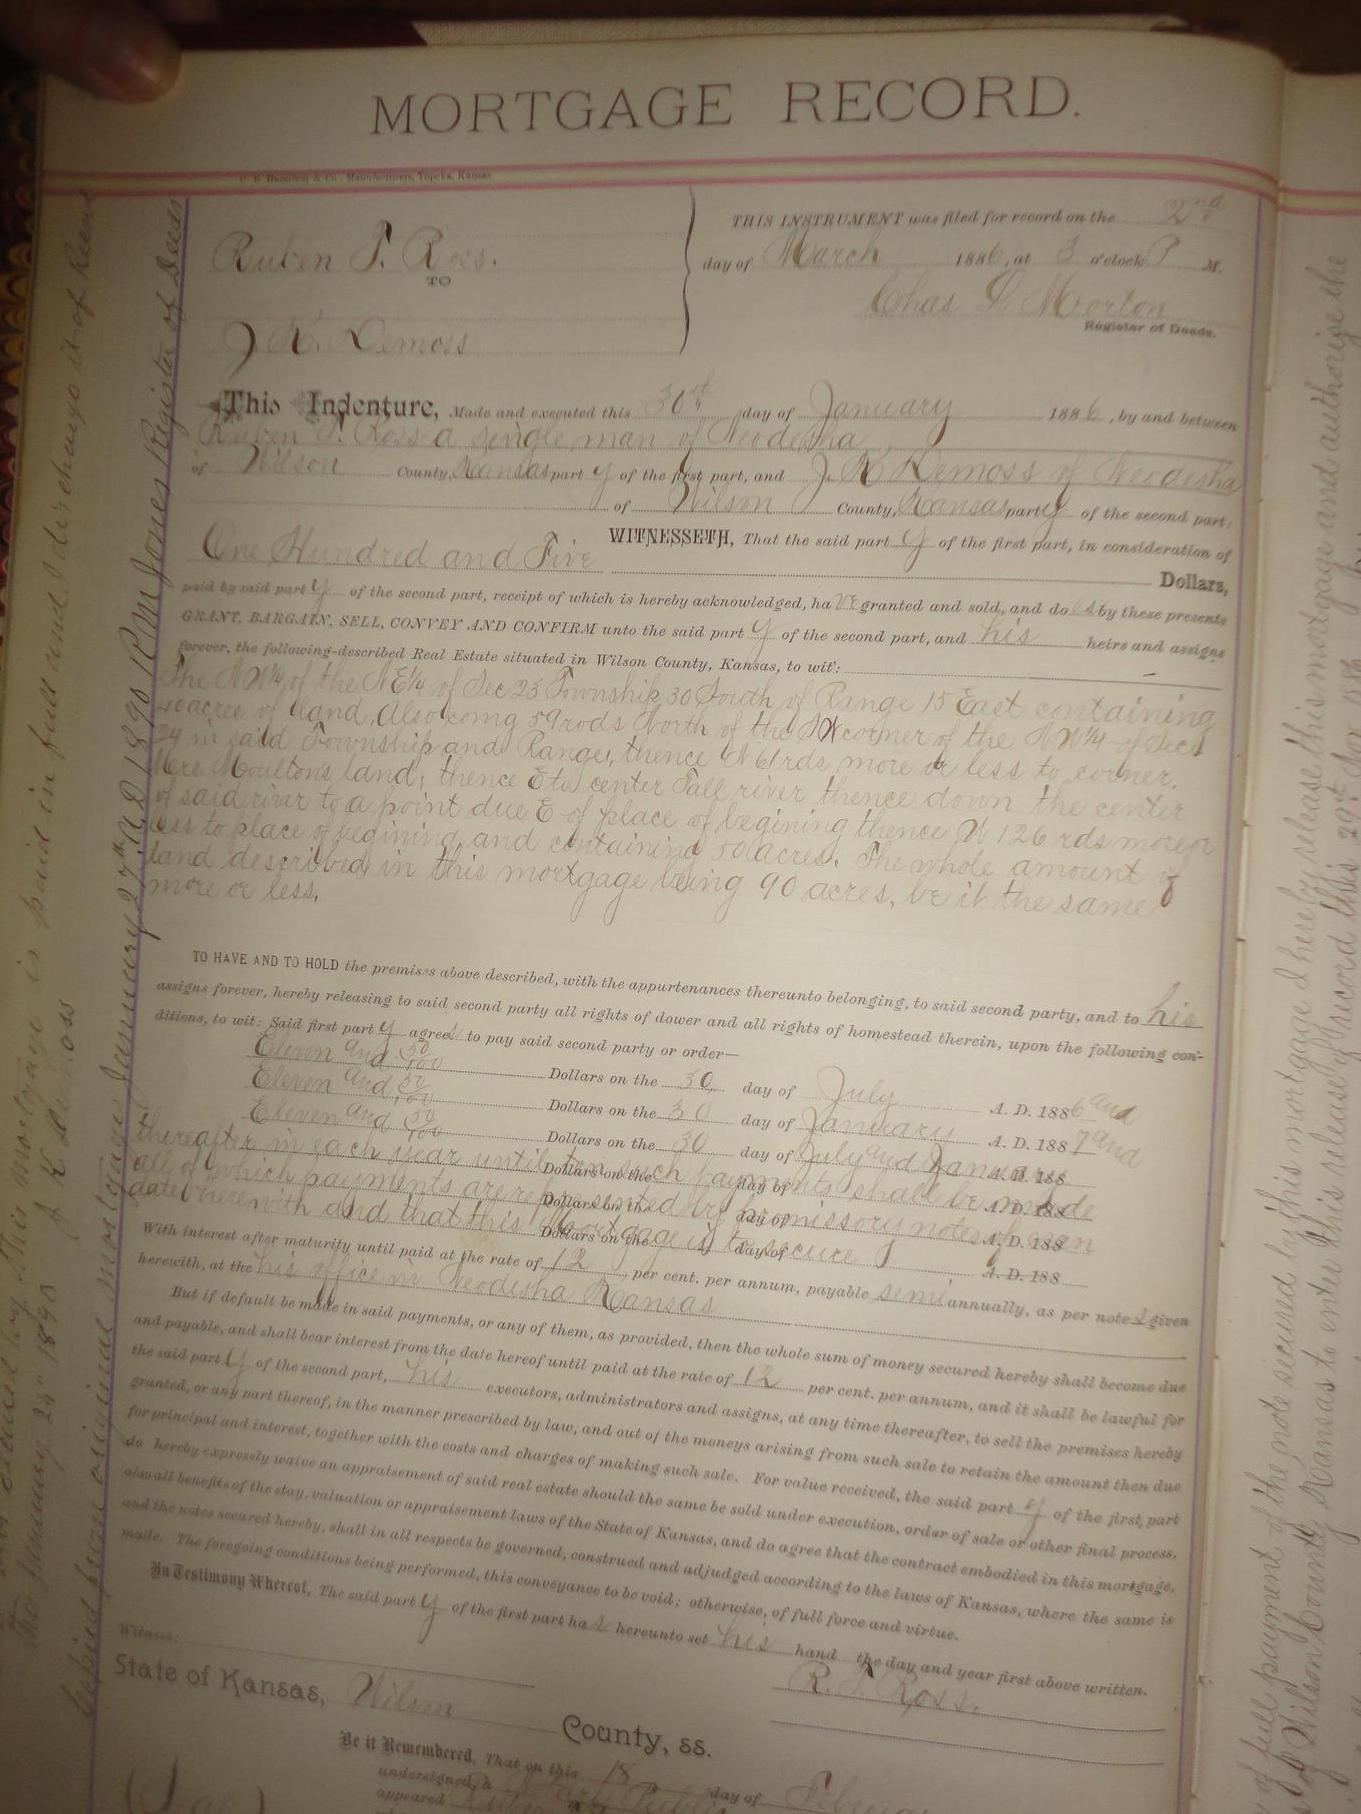 MORTGAGE RECORD.
Manufacturers, Topeka, Kansas
THIS INSTRUMENT was filed for record on the 2nd
day of March 1886, at 3 o'clock P M.
Chas D Morton
Register of Deeds.
Ruben T. Ross.
TO
J K. Demoss
This Indenture, Made and executed this 30st day of January 1886, by and between
Ruben T. Ross a single man of Neodesha
of Wilson County, Kansas part y of the first part, and J. K Demoss of Neodesha
of Wilson County, Kansas party of the second part;
WITNESSETH, That the said part y of the first part, in consideration of
One Hundred and Five Dollars,
paid by said part y of the second part, receipt of which is hereby acknowledged, ha ve granted and sold, and do es by these presents
GRANT, BARGAIN, SELL, CONVEY AND CONFIRM unto the said part y of the second part, and his heirs and assigns
forever, the following-described Real Estate situated in Wilson County, Kansas, to wit:
The NW¼ of the NE¼ of Sec 23 Township 30 South of Range 15 East containing
40 acres of land, Also comg 59 rods North of the SW corner of the NW¼ of Sec
24 in said Township and Range, thence N 61 rds more or less to corner.
Mrs Moulton's land, thence E to center Fall river thence down the center
of said river to a point due E of place of begining thence W 126 rds more or
less to place of begining and containing 50 acres. The whole amount of
land described in this mortgage being 90 acres, be it the same
more or less.
TO HAVE AND TO HOLD the premises above described, with the appurtenances thereunto belonging, to said second party, and to his
assigns forever, hereby releasing to said second party all rights of dower and all rights of homestead therein, upon the following con-
ditions, to wit: Said first part y agrees to pay said second party or order—
Eleven and 50/100 Dollars on the 30 day of July A. D. 1886 and
Eleven and 50/100 Dollars on the 30 day of January A. D. 1887 and
Eleven and 50/100 Dollars on the 30 day of July and January A. D. 188
thereafter in each year until ten such payments shall be made Dollars on the day of A. D. 188
all of which payments are represented by promissory notes of even Dollars on the day of A. D. 188
date herewith and that this Mortgage is to secure Dollars on the day of A. D. 188
With interest after maturity until paid at the rate of 12 per cent. per annum, payable semi annually, as per notes given
herewith, at the his office in Neodesha Kansas
But if default be made in said payments, or any of them, as provided, then the whole sum of money secured hereby shall become due
and payable, and shall bear interest from the date hereof until paid at the rate of 12 per cent. per annum, and it shall be lawful for
the said part y of the second part, his executors, administrators and assigns, at any time thereafter, to sell the premises hereby
granted, or any part thereof, in the manner prescribed by law, and out of the moneys arising from such sale to retain the amount then due
for principal and interest, together with the costs and charges of making such sale. For value received, the said part y of the first part
do hereby expressly waive an appraisement of said real estate should the same be sold under execution, order of sale or other final process,
also all benefits of the stay, valuation or appraisement laws of the State of Kansas, and do agree that the contract embodied in this mortgage,
and the notes secured hereby, shall in all respects be governed, construed and adjudged according to the laws of Kansas, where the same is
made. The foregoing conditions being performed, this conveyance to be void; otherwise, of full force and virtue.
In Testimony Whereof, The said part y of the first part has hereunto set his hand the day and year first above written.
Witness:
R. T. Ross.
State of Kansas, Wilson County, ss.
Be it Remembered, That on this 18 day of
undersigned, a Notary Public
appeared
This mortgage is paid in full and discharge it of Record
This January 24" 1890 J K Demoss
Copied from original mortgage January 27th A D 1890 R M Jones Register of Deeds
of full payment of the note secured by this mortgage I hereby release this mortgage and authorize the
of Wilson County Kansas to enter this release of record this 29"